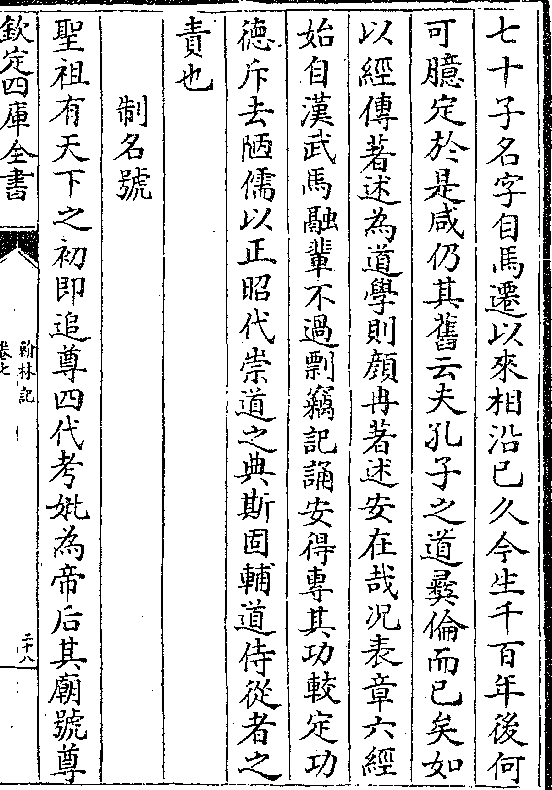 七十子名字自馬遷以來相沿已久今生千百年後何
可臆定於是咸仍其舊云夫孔子之道彛倫而已矣如
以經傳著述為道學則顔冉著述安在哉况表章六經
始自漢武馬融輩不過剽竊記誦安得專其功較定功
德斥去陋儒以正昭代崇道之典斯固輔道侍從者之
責也
制名號
聖祖有天下之初即追尊四代考妣為帝后其廟號尊
欽定四庫全書
翰林記
卷七
二十八